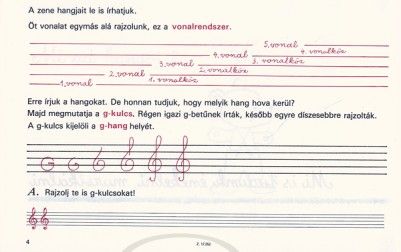 A zene hangjait le is írhatjuk.
Öt vonalat egymás alá rajzolunk, ez a vonalrendszer.
5. vonal
4. vonal 4. vonalköz
3. vonal 3. vonalköz
2. vonal 2. vonalköz
1. vonal 1. vonalköz
Erre írjuk a hangokat. De honnan tudjuk, hogy melyik hang hova kerül?
Majd megmutatja a g-kulcs. Régen igazi g-betűnek írták, később egyre díszesebbre rajzolták.
A g-kulcs kijelöli a g-hang helyét.
A. Rajzolj te is g-kulcsokat!
4